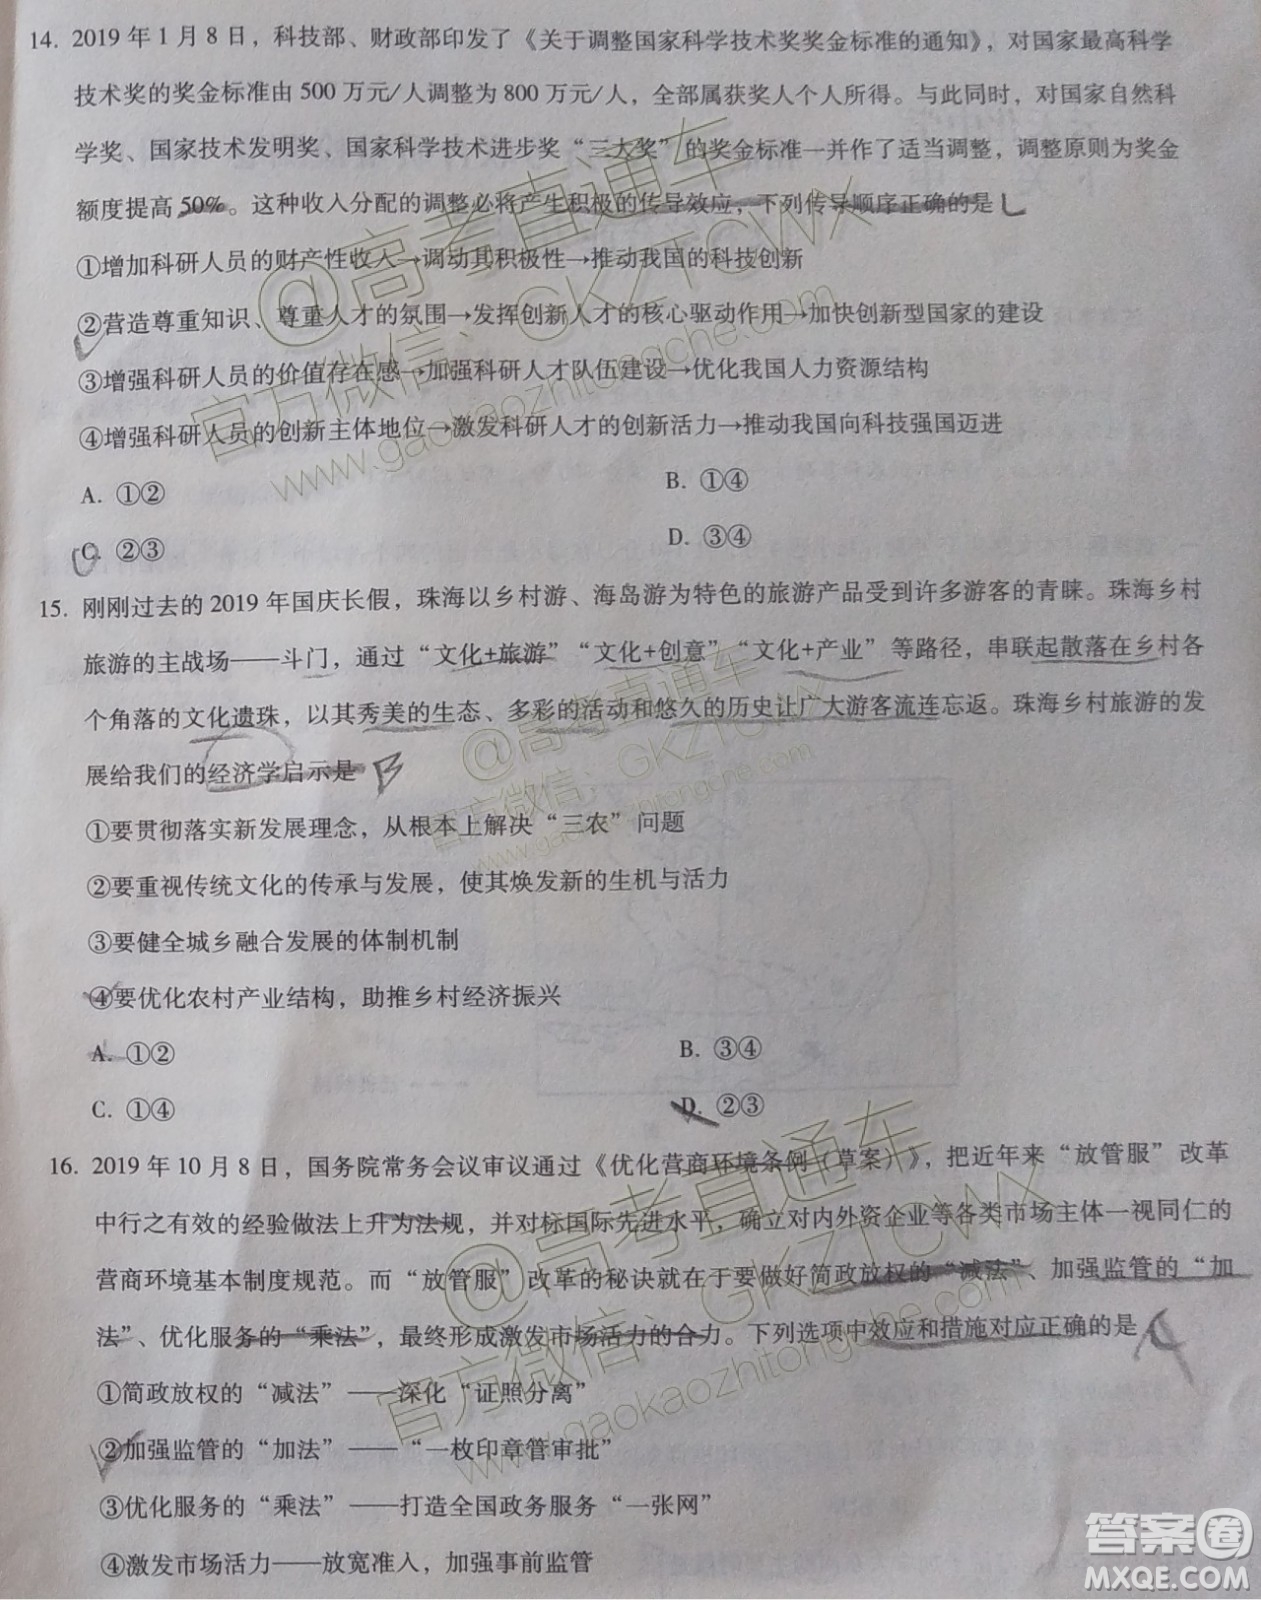 14. 2019 年 1 月 8 日，科技部、财政部印发了《关于调整国家科学技术奖奖金标准的通知》，对国家最高科学
技术奖的奖金标准由 500 万元/人调整为 800 万元/人，全部属获奖人个人所得。与此同时，对国家自然科
学奖、国家技术发明奖、国家科学技术进步奖“三大奖”的奖金标准一并作了适当调整，调整原则为奖金
额度提高 50%。这种收入分配的调整必将产生积极的传导效应，下列传导顺序正确的是
①增加科研人员的财产性收入→调动其积极性→推动我国的科技创新
②营造尊重知识、尊重人才的氛围→发挥创新人才的核心驱动作用→加快创新型国家的建设
③增强科研人员的价值存在感→加强科研人才队伍建设→优化我国人力资源结构
④增强科研人员的创新主体地位→激发科研人才的创新活力→推动我国向科技强国迈进
A. ①② B. ①④
C. ②③ D. ③④
15. 刚刚过去的 2019 年国庆长假，珠海以乡村游、海岛游为特色的旅游产品受到许多游客的青睐。珠海乡村
旅游的主战场——斗门，通过“文化+旅游”“文化+创意”“文化+产业”等路径，串联起散落在乡村各
个角落的文化遗珠，以其秀美的生态、多彩的活动和悠久的历史让广大游客流连忘返。珠海乡村旅游的发
展给我们的经济学启示是 B
①要贯彻落实新发展理念，从根本上解决“三农”问题
②要重视传统文化的传承与发展，使其焕发新的生机与活力
③要健全城乡融合发展的体制机制
④要优化农村产业结构，助推乡村经济振兴
A. ①② B. ③④
C. ①④ D. ②③
16. 2019 年 10 月 8 日，国务院常务会议审议通过《优化营商环境条例（草案）》，把近年来“放管服”改革
中行之有效的经验做法上升为法规，并对标国际先进水平，确立对内外资企业等各类市场主体一视同仁的
营商环境基本制度规范。而“放管服”改革的秘诀就在于要做好简政放权的“减法”、加强监管的“加
法”、优化服务的“乘法”，最终形成激发市场活力的合力。下列选项中效应和措施对应正确的是
①简政放权的“减法”——深化“证照分离”
②加强监管的“加法”——“一枚印章管审批”
③优化服务的“乘法”——打造全国政务服务“一张网”
④激发市场活力——放宽准入，加强事前监管
@高考直通车
官方微信：GKZTCWX
www.gaokaozhitongche.com
@高考直通车
官方微信：GKZTCWX
www.gaokaozhitongche.com
@高考直通车
官方微信：GKZTCWX
www.gaokaozhitongche.com
答案圈
MXQE.COM